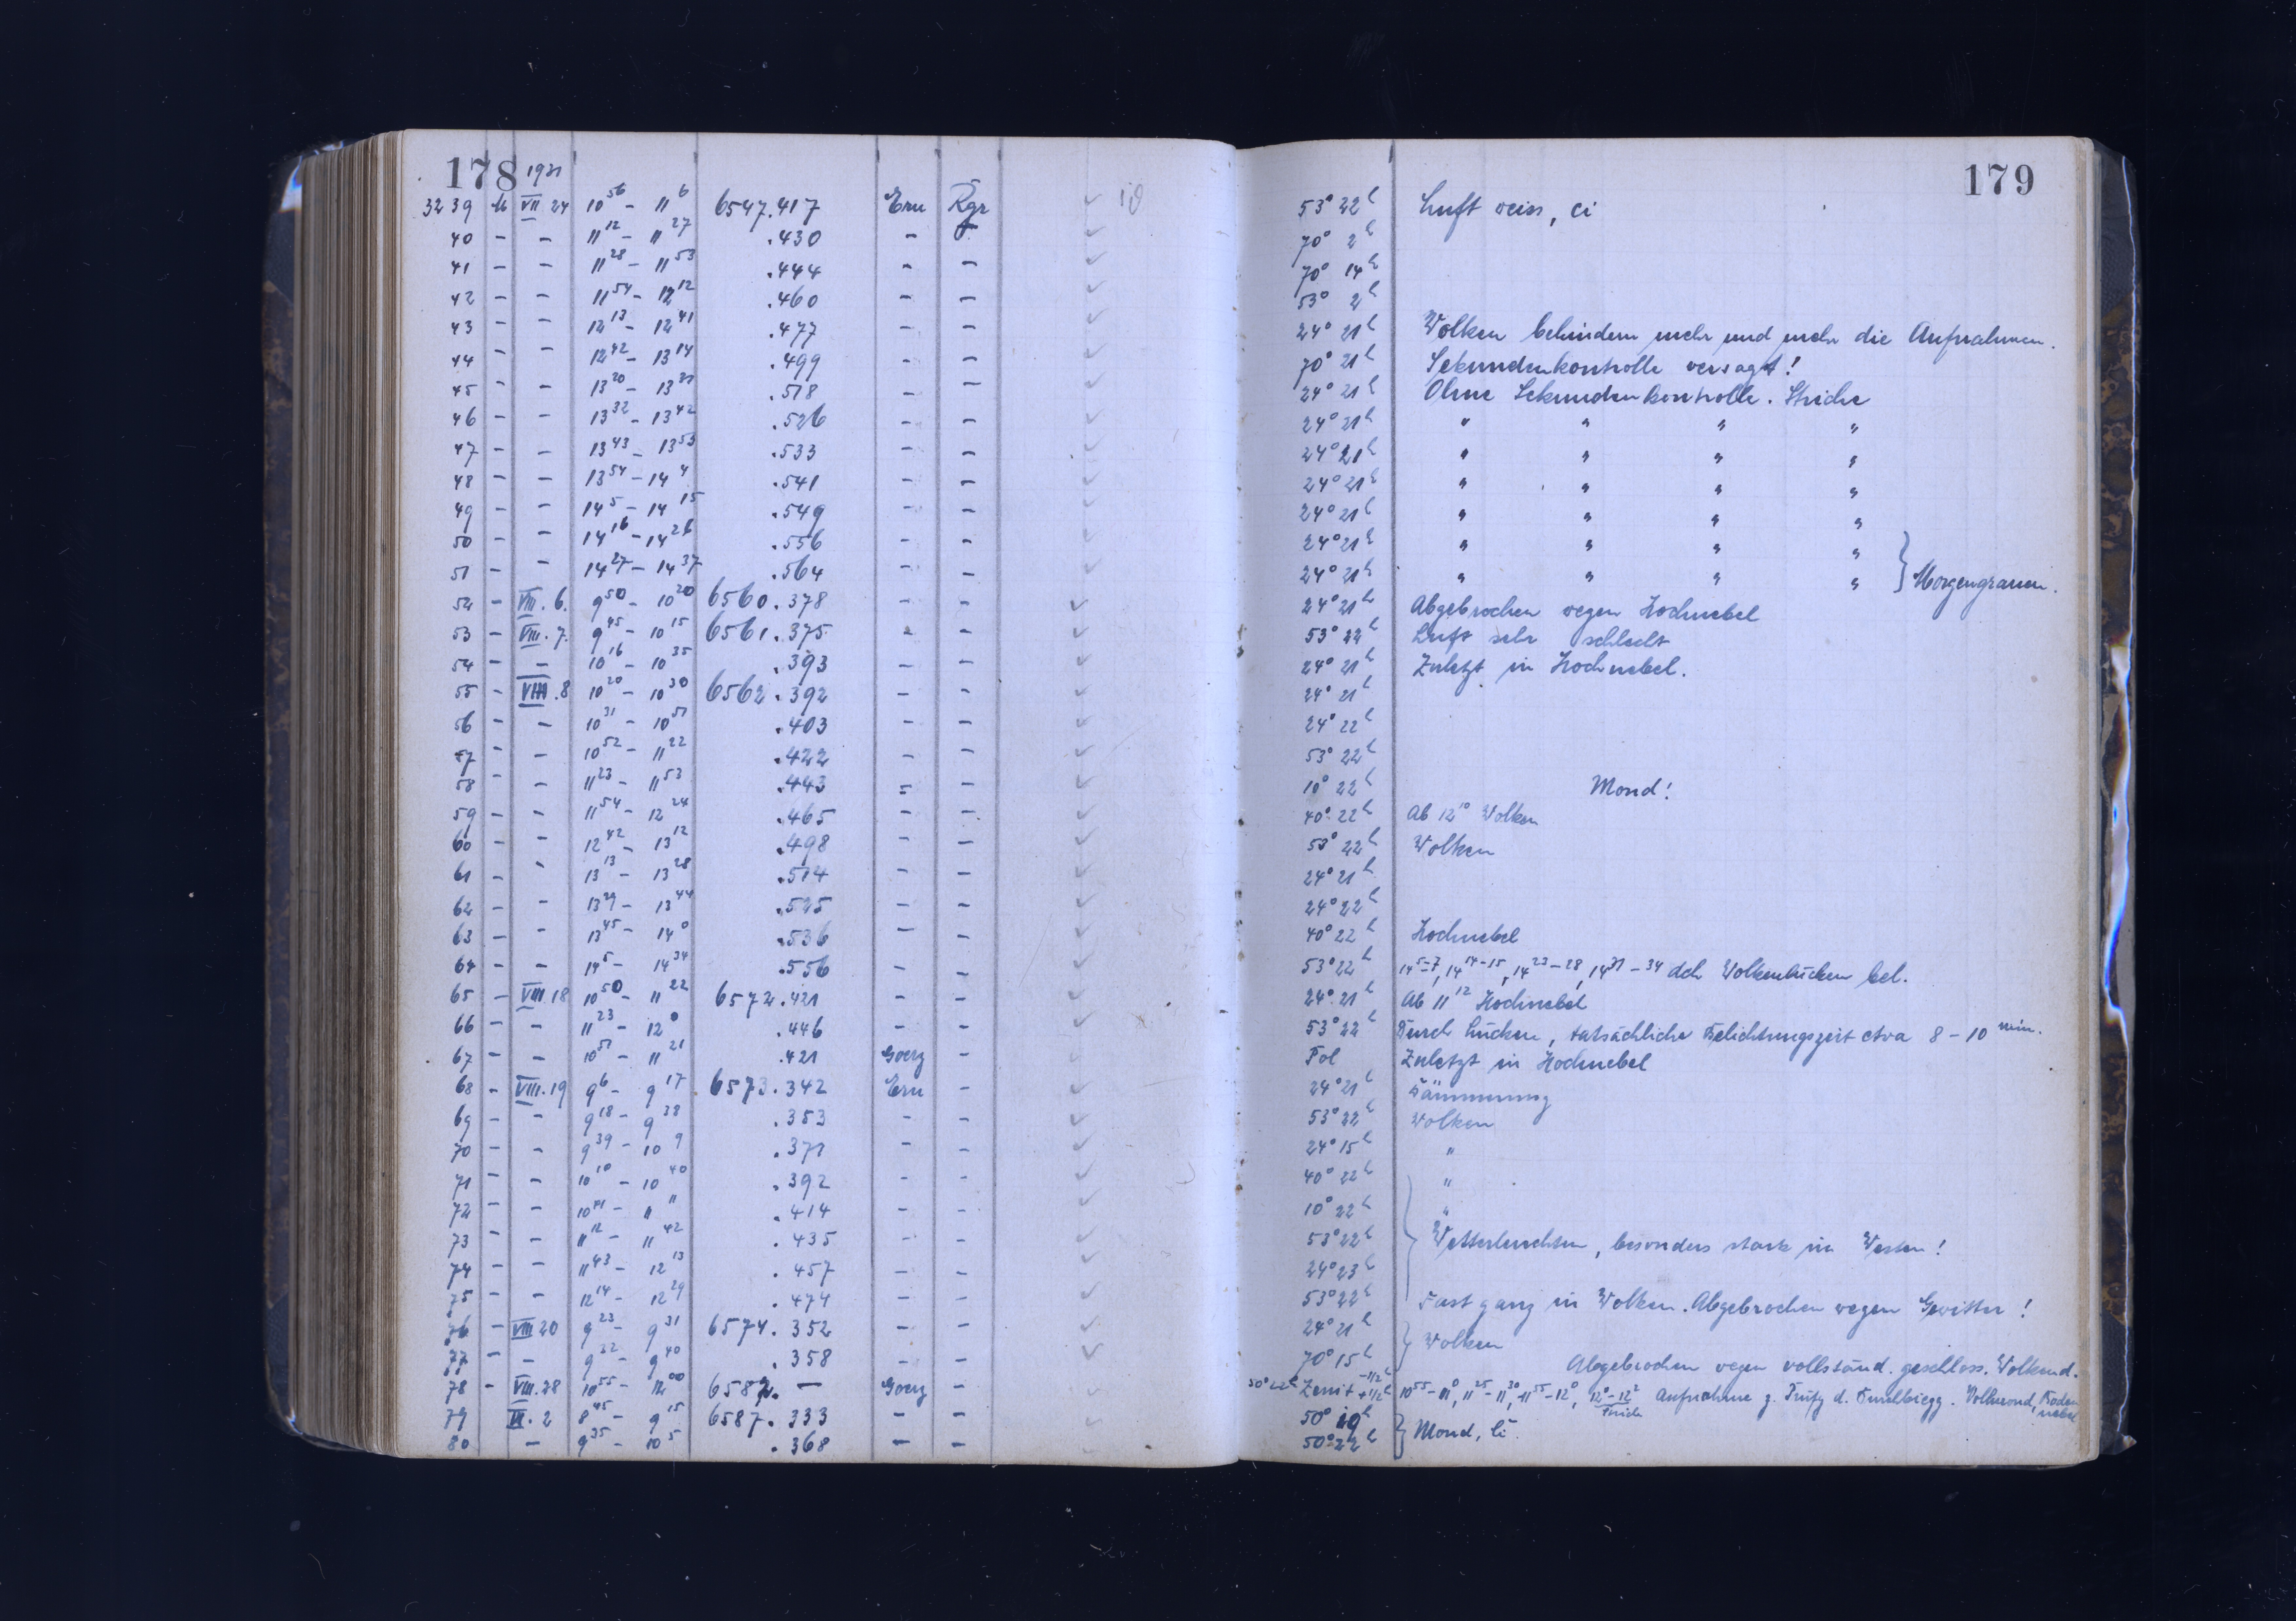 178 1931
3239 M VII 24 10 56 – 11 6 6547.417 Ern Rgr 53° 22h Luft weiss, ci
40 – – 11 12 – 11 27 .430 – – 70° 2h
41 – – 11 28 – 11 53 .444 – – 70° 14h
42 – – 11 54 – 12 12 .460 – – 53° 2h
43 – – 12 13 – 12 41 .477 – – 24° 21h Wolken behindern mehr und mehr die Aufnahmen.
44 – – 12 42 – 13 14 .499 – – 70° 21h Sekundenkontrolle versagt!
45 – – 13 20 – 13 31 .518 – – 24° 21h Ohne Sekundenkontrolle. Striche
46 – – 13 32 – 13 42 .526 – – 24° 21h " " " "
47 – – 13 43 – 13 53 .533 – – 24° 21h " " " "
48 – – 13 54 – 14 4 .541 – – 24° 21h " " " "
49 – – 14 5 – 14 15 .549 – – 24° 21h " " " "
50 – – 14 16 – 14 26 .556 – – 24° 21h " " " "
51 – – 14 27 – 14 37 .564 – – 24° 21h " " " " } Morgengrauen.
52 – VIII. 6. 9 50 – 10 20 6560.378 – – 24° 21h Abgebrochen wegen Hochnebel
53 – VIII. 7. 9 45 – 10 15 6561.375 – – 53° 22h Luft sehr schlecht
54 – – 10 16 – 10 35 .393 – – 24° 21h Zuletzt in Hochnebel.
55 – VIII. 8 10 20 – 10 30 6562.392 – – 24° 21h
56 – – 10 31 – 10 51 .403 – – 24° 22h
57 – – 10 52 – 11 22 .422 – – 53° 22h
58 – – 11 23 – 11 53 .443 – – 10° 22h Mond!
59 – – 11 54 – 12 24 .465 – – 40° 22h Ab 12 10 Wolken
60 – – 12 42 – 13 12 .498 – – 53° 22h Wolken
61 – – 13 13 – 13 28 .514 – – 24° 21h
62 – – 13 29 – 13 44 .525 – – 24° 22h
63 – – 13 45 – 14 0 .536 – – 40° 22h Hochnebel
64 – – 14 5 – 14 34 .556 – – 53° 22h 14 5–7, 14 14–15, 14 23–28, 14 31–34 dch Wolkenlücken bel.
65 – VIII. 18 10 50 – 11 22 6572.421 – – 24° 21h Ab 11 12 Hochnebel
66 – – 11 23 – 12 0 .446 – – 53° 22h Durch Lücken, tatsächliche Belichtungszeit etwa 8 – 10 min.
67 – – 10 51 – 11 21 .421 Goerz – Pol Zuletzt in Hochnebel
68 – VIII. 19 9 6 – 9 17 6573.342 Ern – 24° 21h Dämmerung
69 – – 9 18 – 9 38 .353 – – 53° 22h Wolken
70 – – 9 39 – 10 9 .371 – – 24° 15h "
71 – – 10 10 – 10 40 .392 – – 40° 22h "
72 – – 10 41 – 11 11 .414 – – 10° 22h "
73 – – 11 12 – 11 42 .435 – – 53° 22h Wetterleuchten, besonders stark im Westen!
74 – – 11 43 – 12 13 .457 – – 24° 23h
75 – – 12 14 – 12 29 .474 – – 53° 22h Fast ganz in Wolken. Abgebrochen wegen Gewitter!
76 – VIII 20 9 23 – 9 31 6574.352 – – 24° 21h } Wolken
77 – – 9 32 – 9 40 .358 – – 70° 15h Abgebrochen wegen vollständ. geschloss. Wolkend.
78 – VIII. 28 10 55 – 12 00 6582. — Goerz – 50° 22h Zenit –1/2h +1/2h 10 55 – 11 0, 11 25 – 11 30, 11 55 – 12 0, 12 0 – 12 2 Striche Aufnahme z. Prüfg d. Vollmond, Bodennebel
79 – IX. 2 8 45 – 9 15 6587.333 – – 50° 19h
80 – 9 35 – 10 5 .368 – – 50° 22h } Mond, Ci.
179